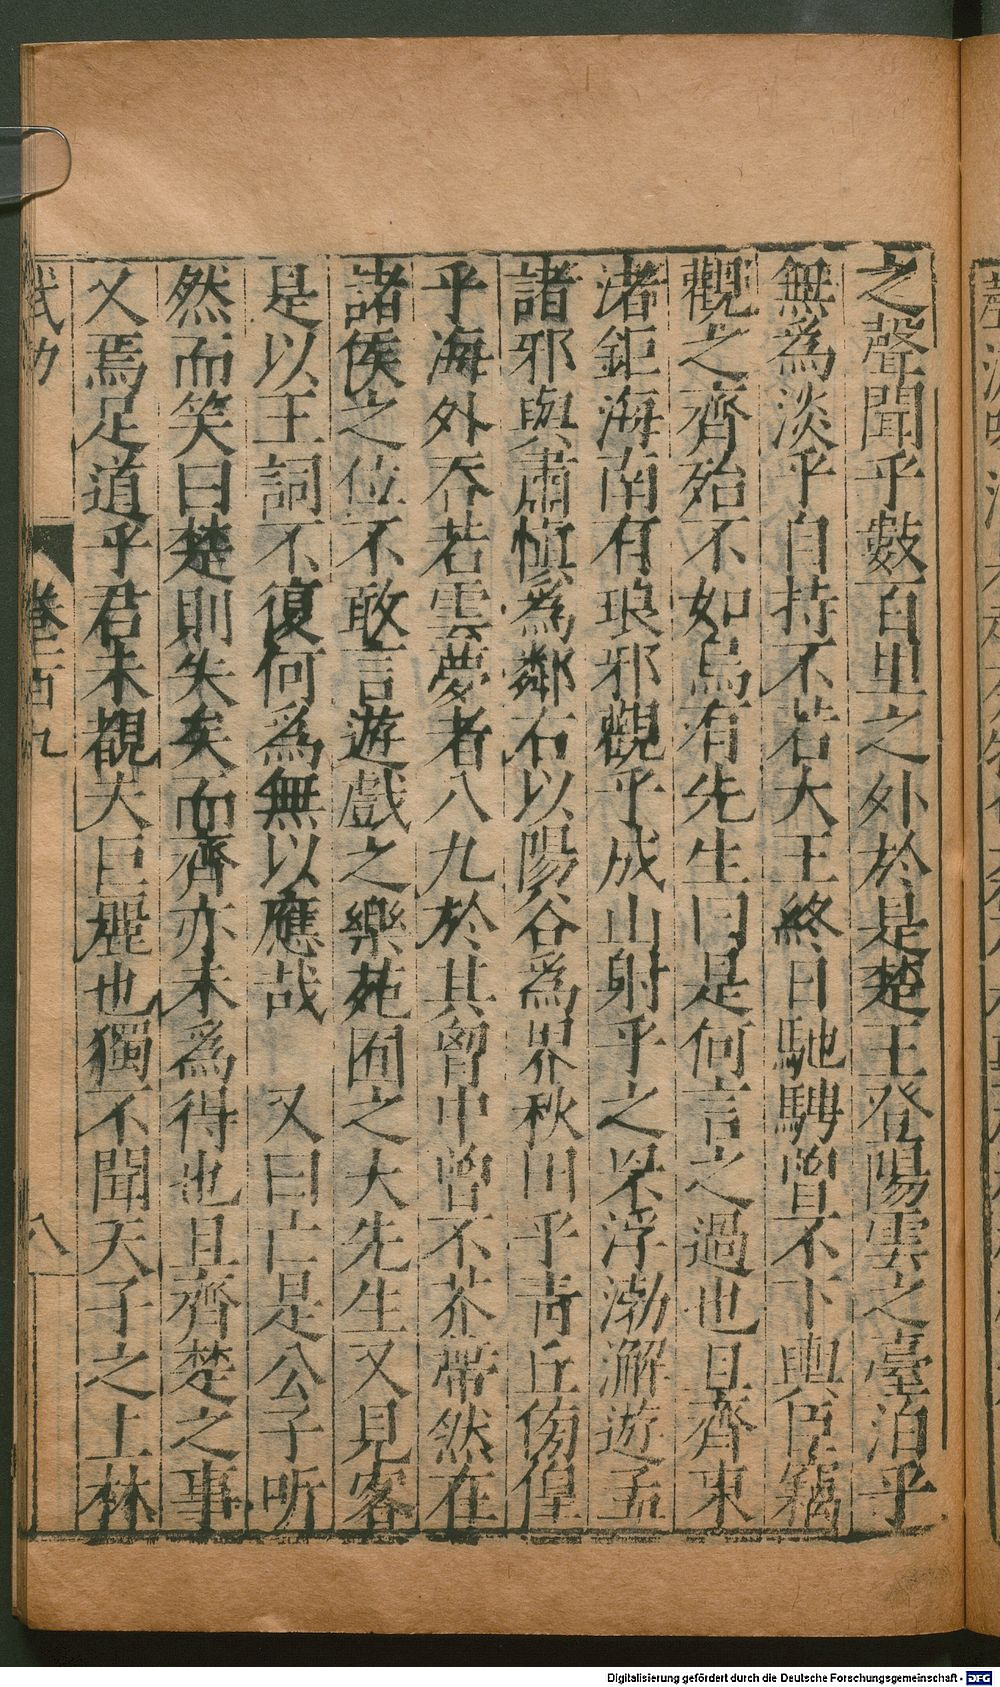 之聲聞乎數百里之外於是楚王登陽雲之臺泊乎
無為淡乎自持不若大王終日馳騁曾不下輿臣竊
觀之齊殆不如烏有先生曰是何言之過也且齊東
渚鉅海南有琅邪觀乎成山射乎之罘浮渤澥遊孟
諸邪與肅慎為鄰右以陽谷為界秋田乎青丘徬徨
乎海外吞若雲夢者八九於其胷中曾不芥帶然在
諸侯之位不敢言遊戲之樂苑囿之大先生又見客
是以王詞不復何為無以應哉　又曰亡是公子听
然而笑曰楚則失矣而齊亦未為得也且齊楚之事
又焉足道乎君未覩夫巨麗也獨不聞天子之上林
武功
卷一百九
八
Digitalisierung gefördert durch die Deutsche Forschungsgemeinschaft - DFG